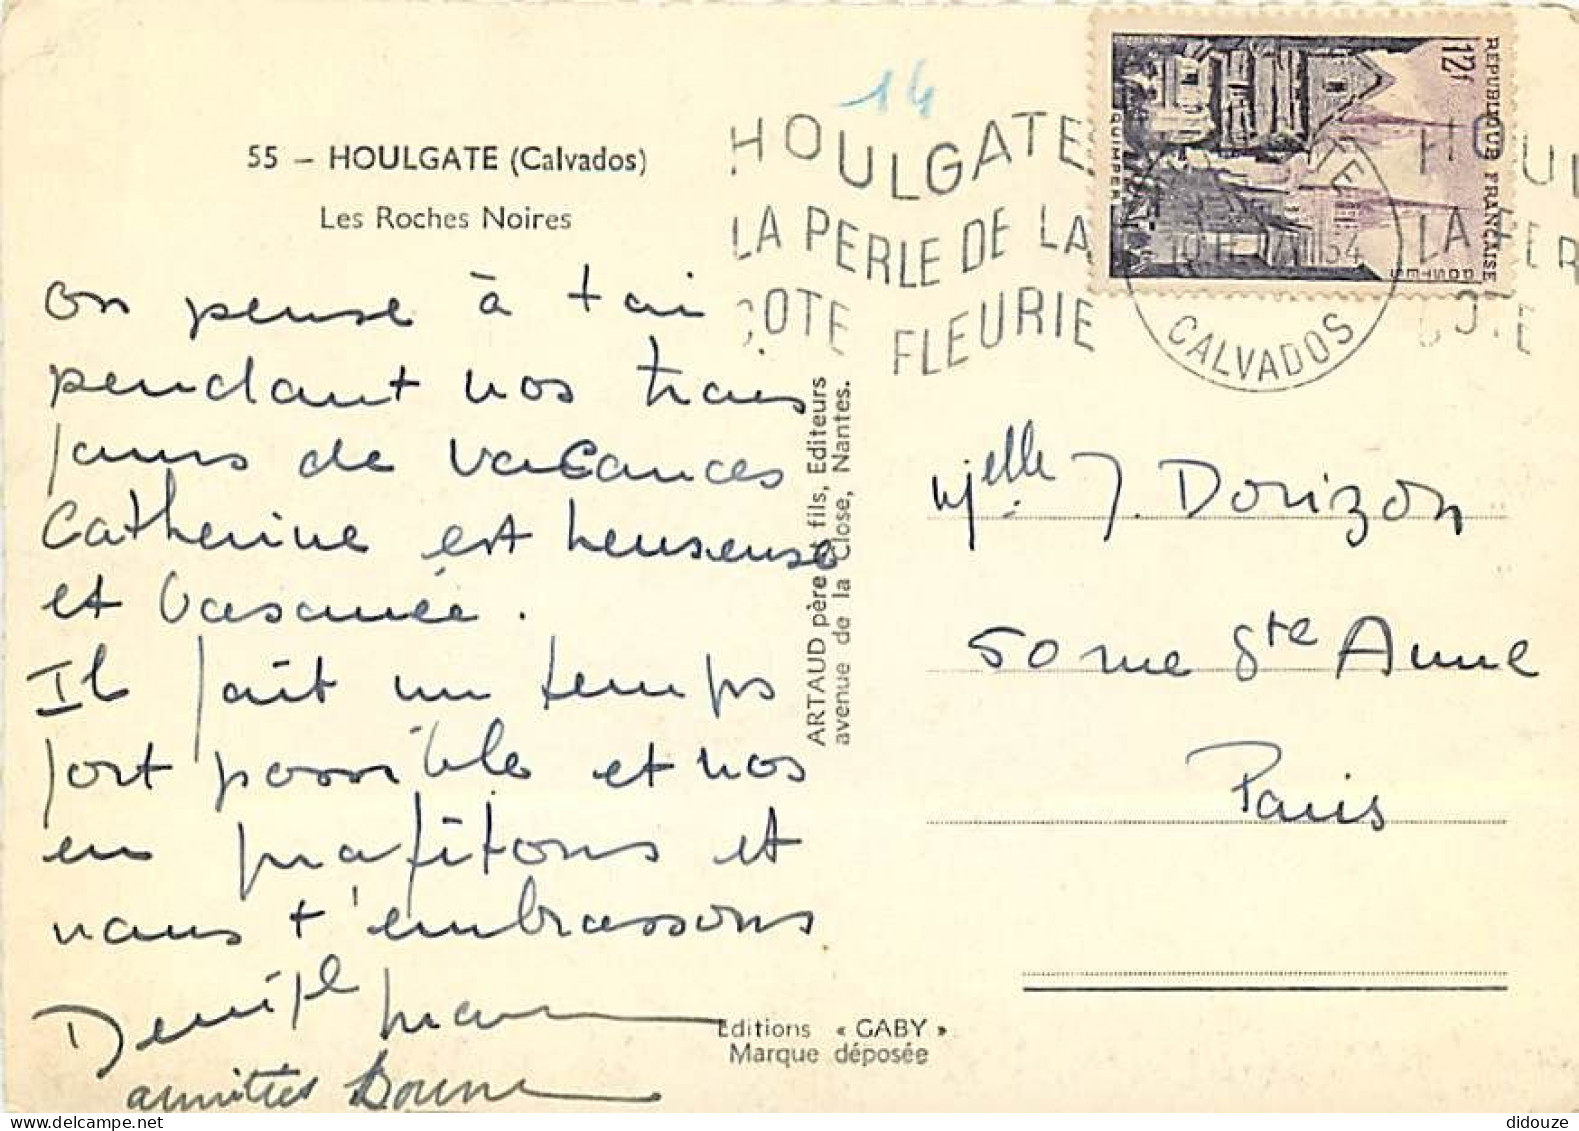 55 – HOULGATE (Calvados)
Les Roches Noires
on pense à toi
pendant nos trois
jours de vacances
Catherine est heureuse
et
Il fait un temps
fort possible et nos
en profitons et
nous t'embrassons
amitiés
ARTAUD père et fils, Editeurs
avenue de la Close, Nantes.
Editions « GABY »
Marque déposée
14
HOULGATE
LA PERLE DE LA
COTE FLEURIE
CALVADOS
REPUBLIQUE FRANÇAISE
12f
QUIMPER
HOUL
LA PER
COTE
Melle J. Dorizon
50 rue Ste Anne
Paris
didouze